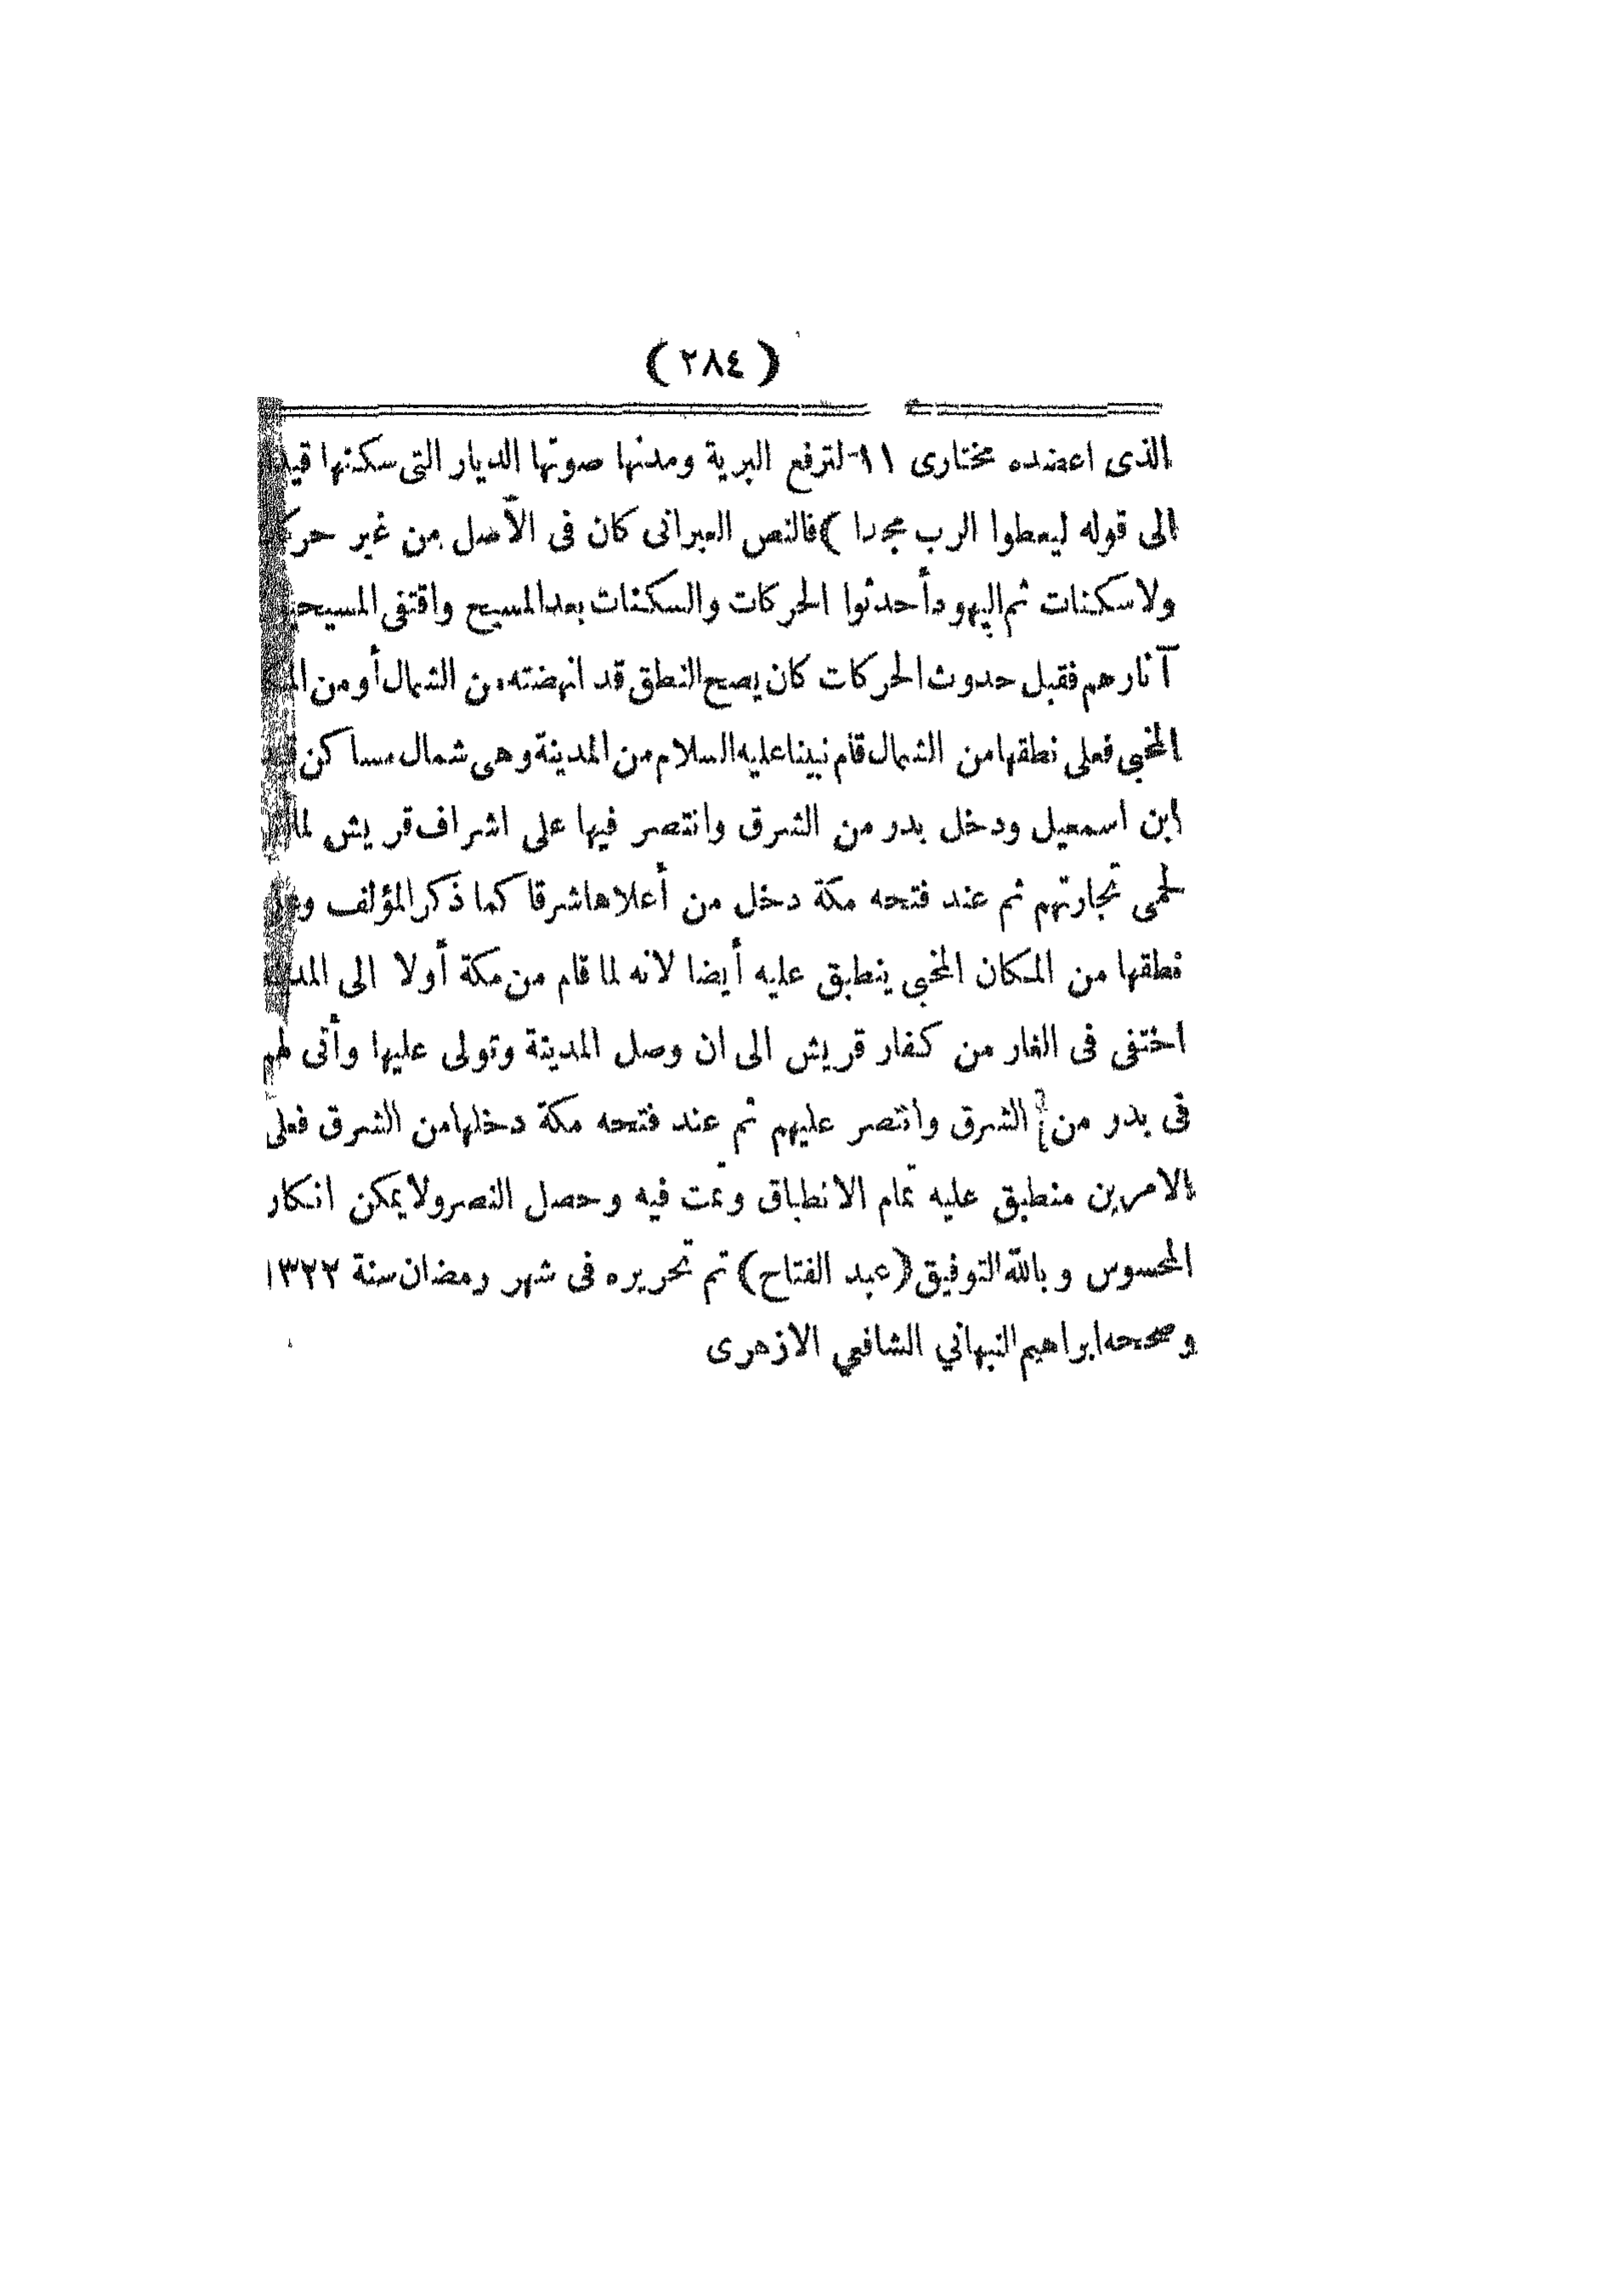 ( ٢٨٤ )
الذى اعضده مختارى ١١-لترفع البرية ومدنها صوتها الديار التى سكنها
الى قوله ليعطوا الرب مجدا ) فالنص العبرانى كان فى الأصل من غير
ولا سكنات ثم اليهود أحدثوا الحركات والسكنات بعد المسيح واقتفى
آثارهم فقبل حدوث الحركات كان يصح النطق قد انهضته من الشمال أو من
المخبى فعلى نطقها من الشمال قام نبينا عليه السلام من المدينة وهى شمال مساكن
ابن اسمعيل ودخل بدر من الشرق وانتصر فيها على اشراف قريش
لحمى تجارتهم ثم عند فتحه مكة دخل من أعلاها شرقا كما ذكر المؤلف
نطقها من المكان المخبى ينطبق عليه أيضا لانه لما قام من مكة أولا الى
اختفى فى الغار من كفار قريش الى ان وصل المدينة وتولى عليها وأتى لهم
فى بدر من الشرق وانتصر عليهم ثم عند فتحه مكة دخلها من الشرق فعلى
الامرين منطبق عليه تمام الانطباق وتمت فيه وحصل النصر ولا يمكن انكار
المحسوس وبالله التوفيق (عبد الفتاح) تم تحريره فى شهر رمضان سنة ١٣٢٢
وصححه ابراهيم النبهاني الشافعي الازهرى